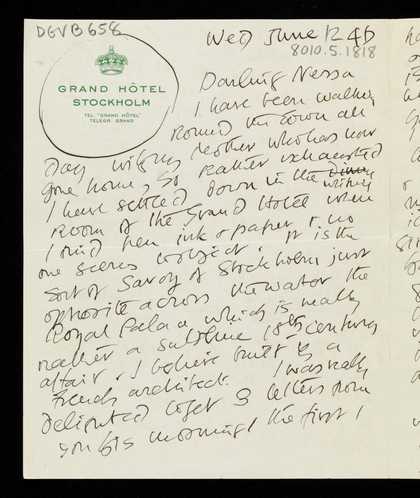 DGVB658
Wed June 12 46
8010.5.1818
GRAND HÔTEL
STOCKHOLM
TEL. "GRAND HÔTEL"
TELEGR. GRAND
Darling Nessa
I have been walking
round the town all
Day with my Mother who has now
gone home, so rather exhausted
I have settled down in the writing
Room of the Grand Hotel where
I find pen ink & paper & no
one seems to object. It is the
sort of Savoy of Stockholm just
opposite across the water the
Royal Palace which is really
rather a sublime 18th century
affair. I believe built by a
French architect. I was really
delighted to get 3 letters from
you this morning, the first I